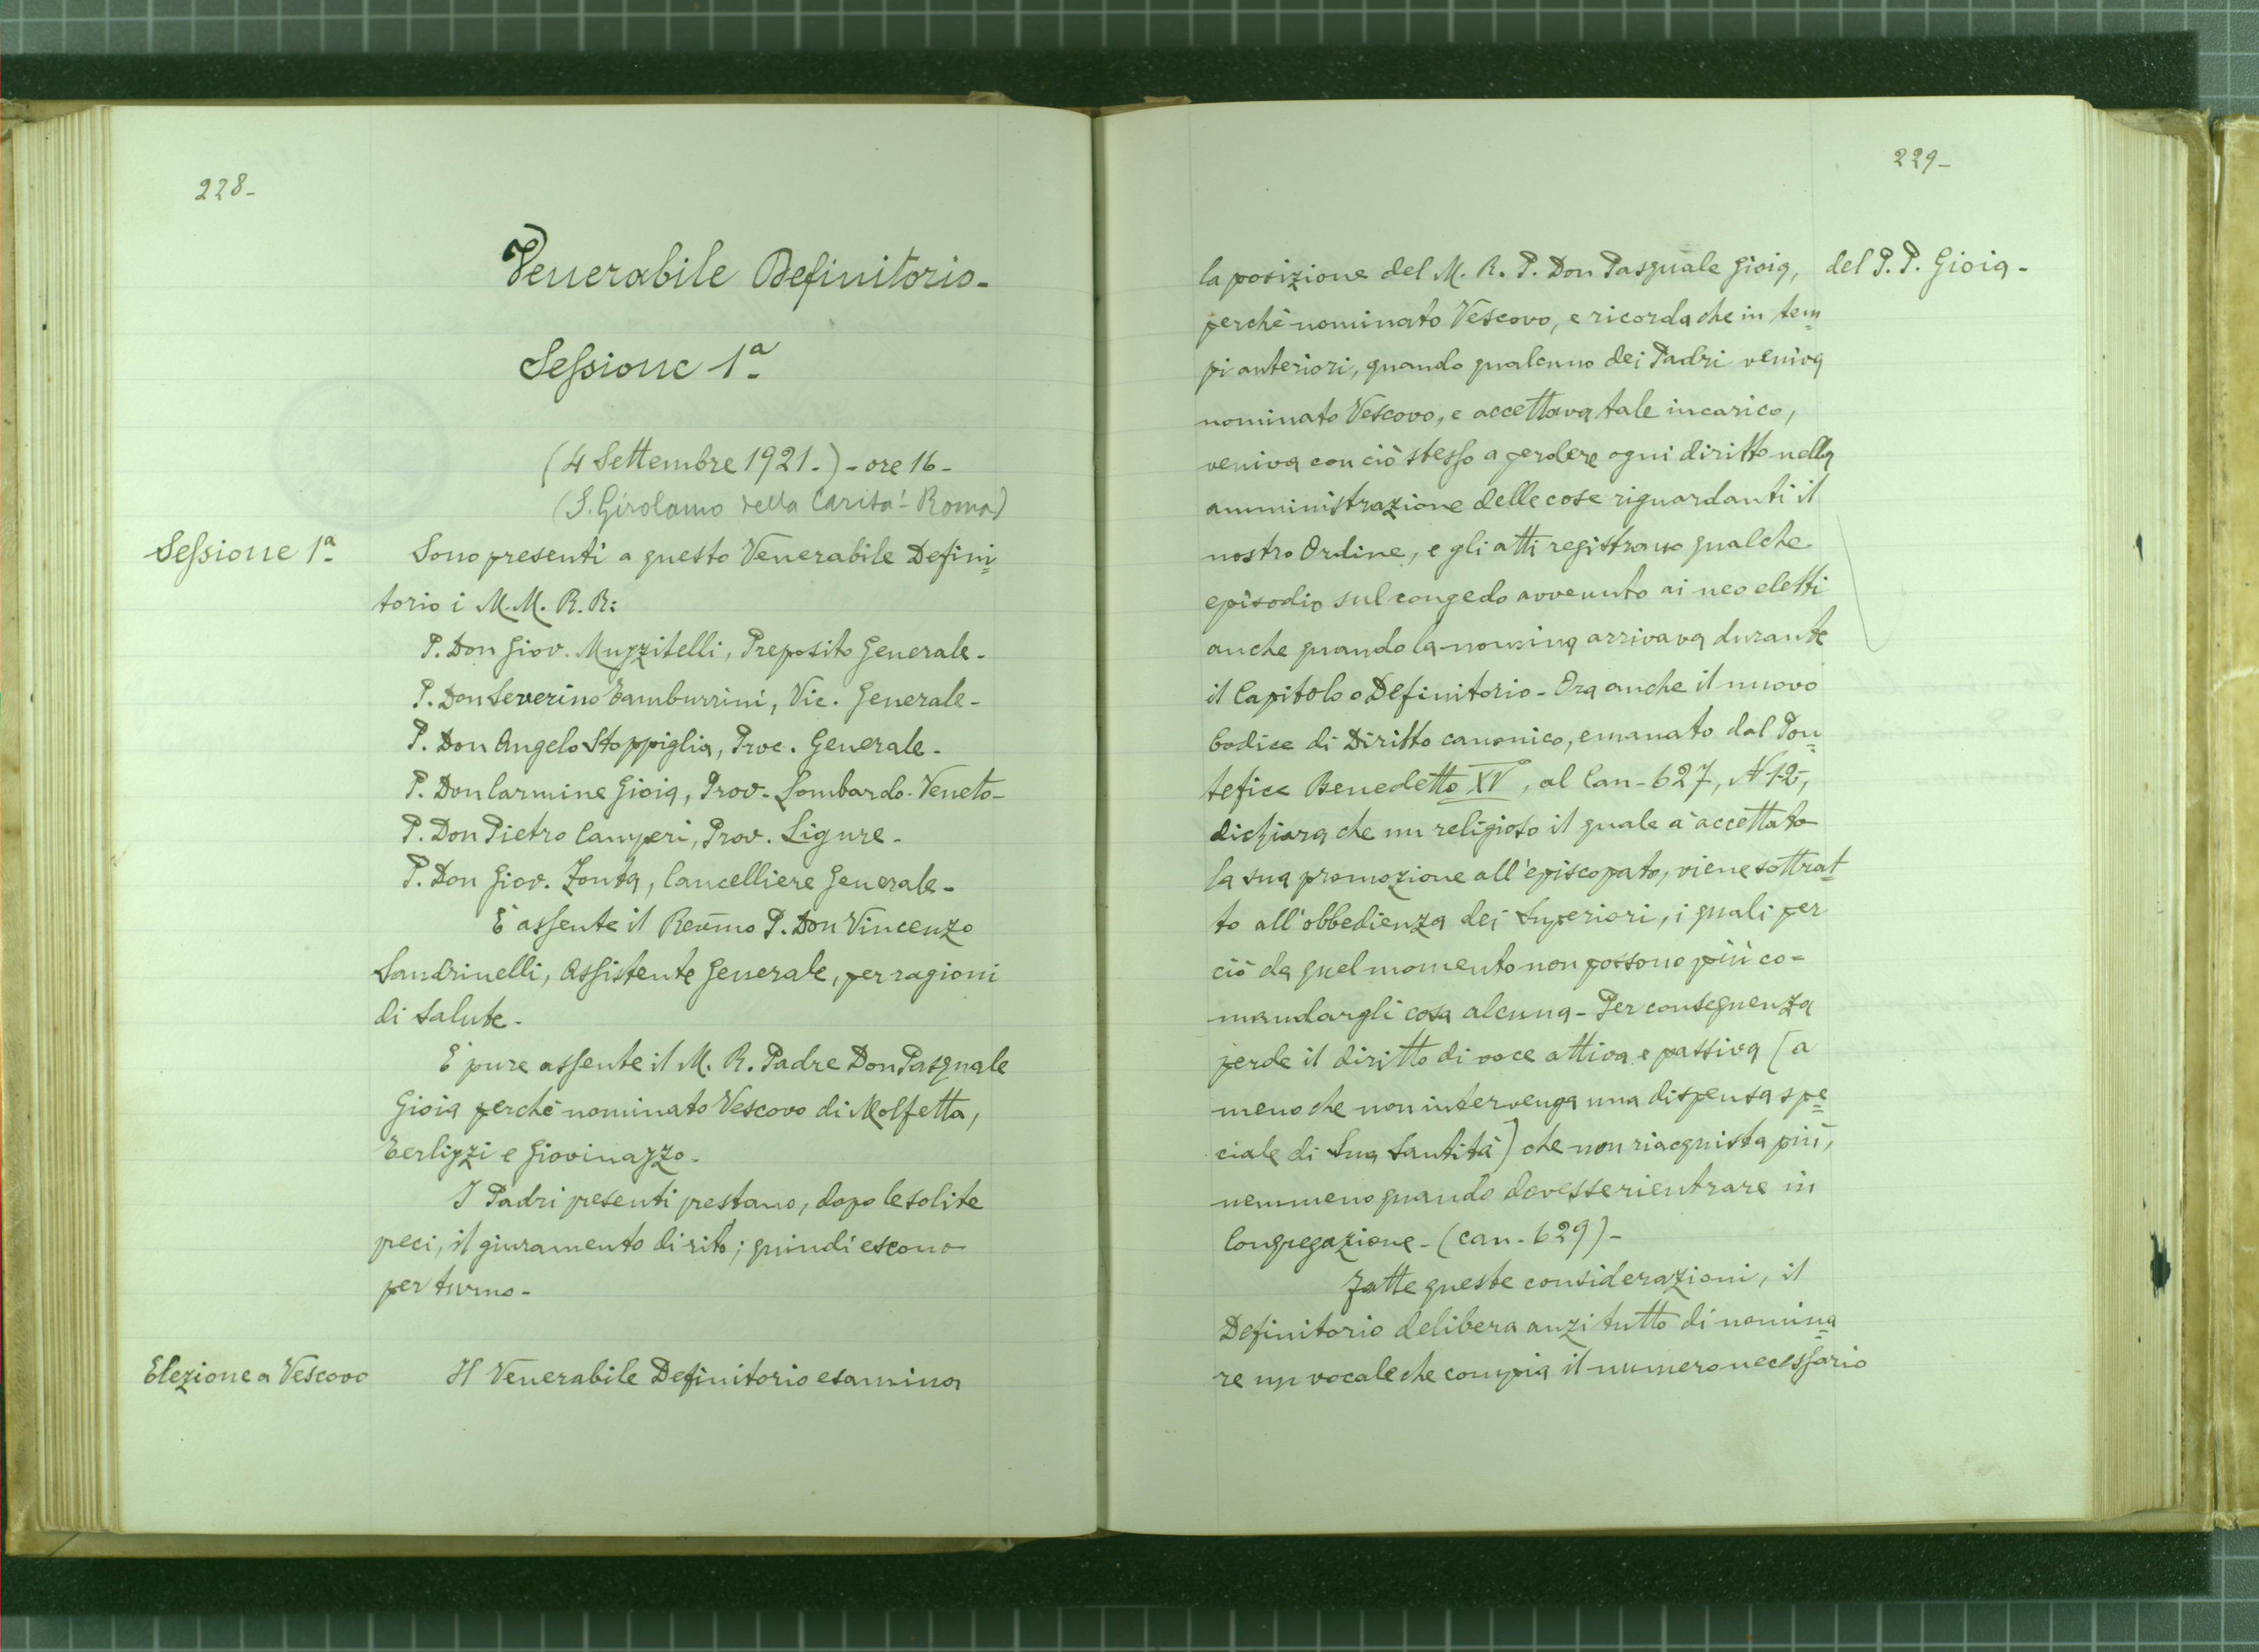 228-
Venerabile Definitorio-
Sessione 1ª
(4 Settembre 1921.) - ore 16-
(S. Girolamo della Carità - Roma)
Sessione 1ª
Sono presenti a questo Venerabile Defini=
torio i M. M. R. R:
P. Don Giov. Muzzitelli, Preposito Generale-
P. Don Severino Tamburrini, Vic. Generale-
P. Don Angelo Stoppiglia, Proc. Generale-
P. Don Carmine Gioia, Prov. Lombardo-Veneto-
P. Don Pietro Camperi, Prov. Ligure-
P. Don Giov. Zonta, Cancelliere Generale-
È assente il Rev̅mo P. Don Vincenzo
Sandrinelli, Assistente Generale, per ragioni
di salute-
È pure assente il M. R. Padre Don Pasquale
Gioia perchè nominato Vescovo di Molfetta,
Terlizzi e Giovinazzo-
I Padri presenti prestano, dopo le solite
preci, il giuramento di rito; quindi escono
per turno-
Elezione a Vescovo
Il Venerabile Definitorio esamina
229-
la posizione del M. R. P. Don Pasquale Gioia,
del P. P. Gioia-
perchè nominato Vescovo, e ricorda che in tem=
pi anteriori, quando qualcuno dei Padri veniva
nominato Vescovo, e accettava tale incarico,
veniva con ciò stesso a perdere ogni diritto nella
amministrazione delle cose riguardanti il
nostro Ordine, e gli atti registrano qualche
episodio sul congedo avvenuto ai neo eletti
anche quando la nomina arrivava durante
il Capitolo o Definitorio- Ora anche il nuovo
Codice di Diritto canonico, emanato dal Pon=
tefice Benedetto XV, al Can- 627, N 1-2-,
dichiara che un religioso il quale à accettato
la sua promozione all'episcopato, viene sottrat=
to all'obbedienza dei Superiori, i quali per
ciò da quel momento non possono più co=
mandargli cosa alcuna- Per conseguenza
perde il diritto di voce attiva e passiva [a
meno che non intervenga una dispensa spe=
ciale di Sua Santità] che non riacquista più,
nemmeno quando dovesse rientrare in
Congregazione- (can- 629)-
Fatte queste considerazioni, il
Definitorio delibera anzi tutto di nomina=
re un vocale che compia il numero necessario